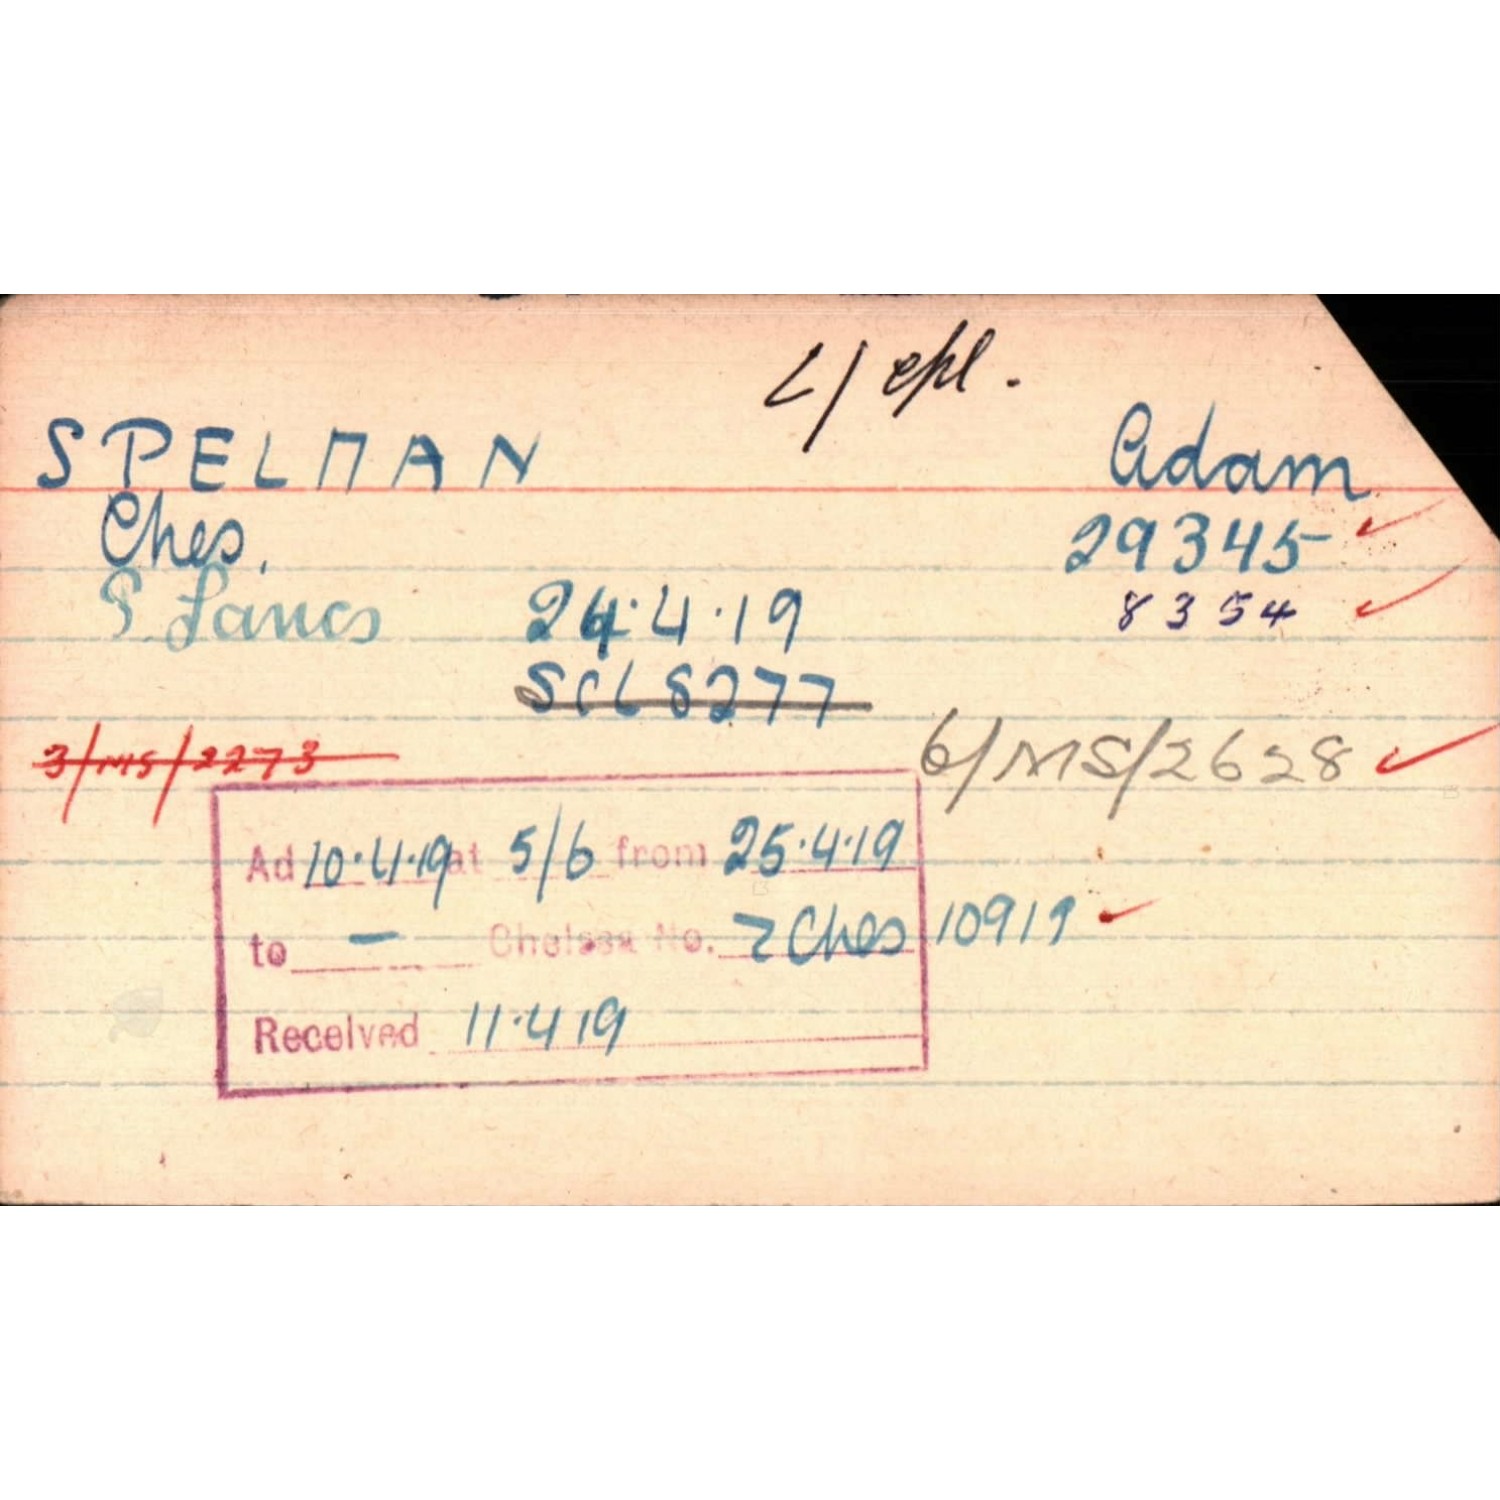 L/cpl.
SPELMAN Adam
Ches. 29345
S. Lancs 24.4.19 8354
SCL 8277
3/MS/2273 6/MS/2628
Ad 10.4.19 at 5/6 from 25.4.19
to — Chelsea No. 7 Ches 10919
Received 11.4.19